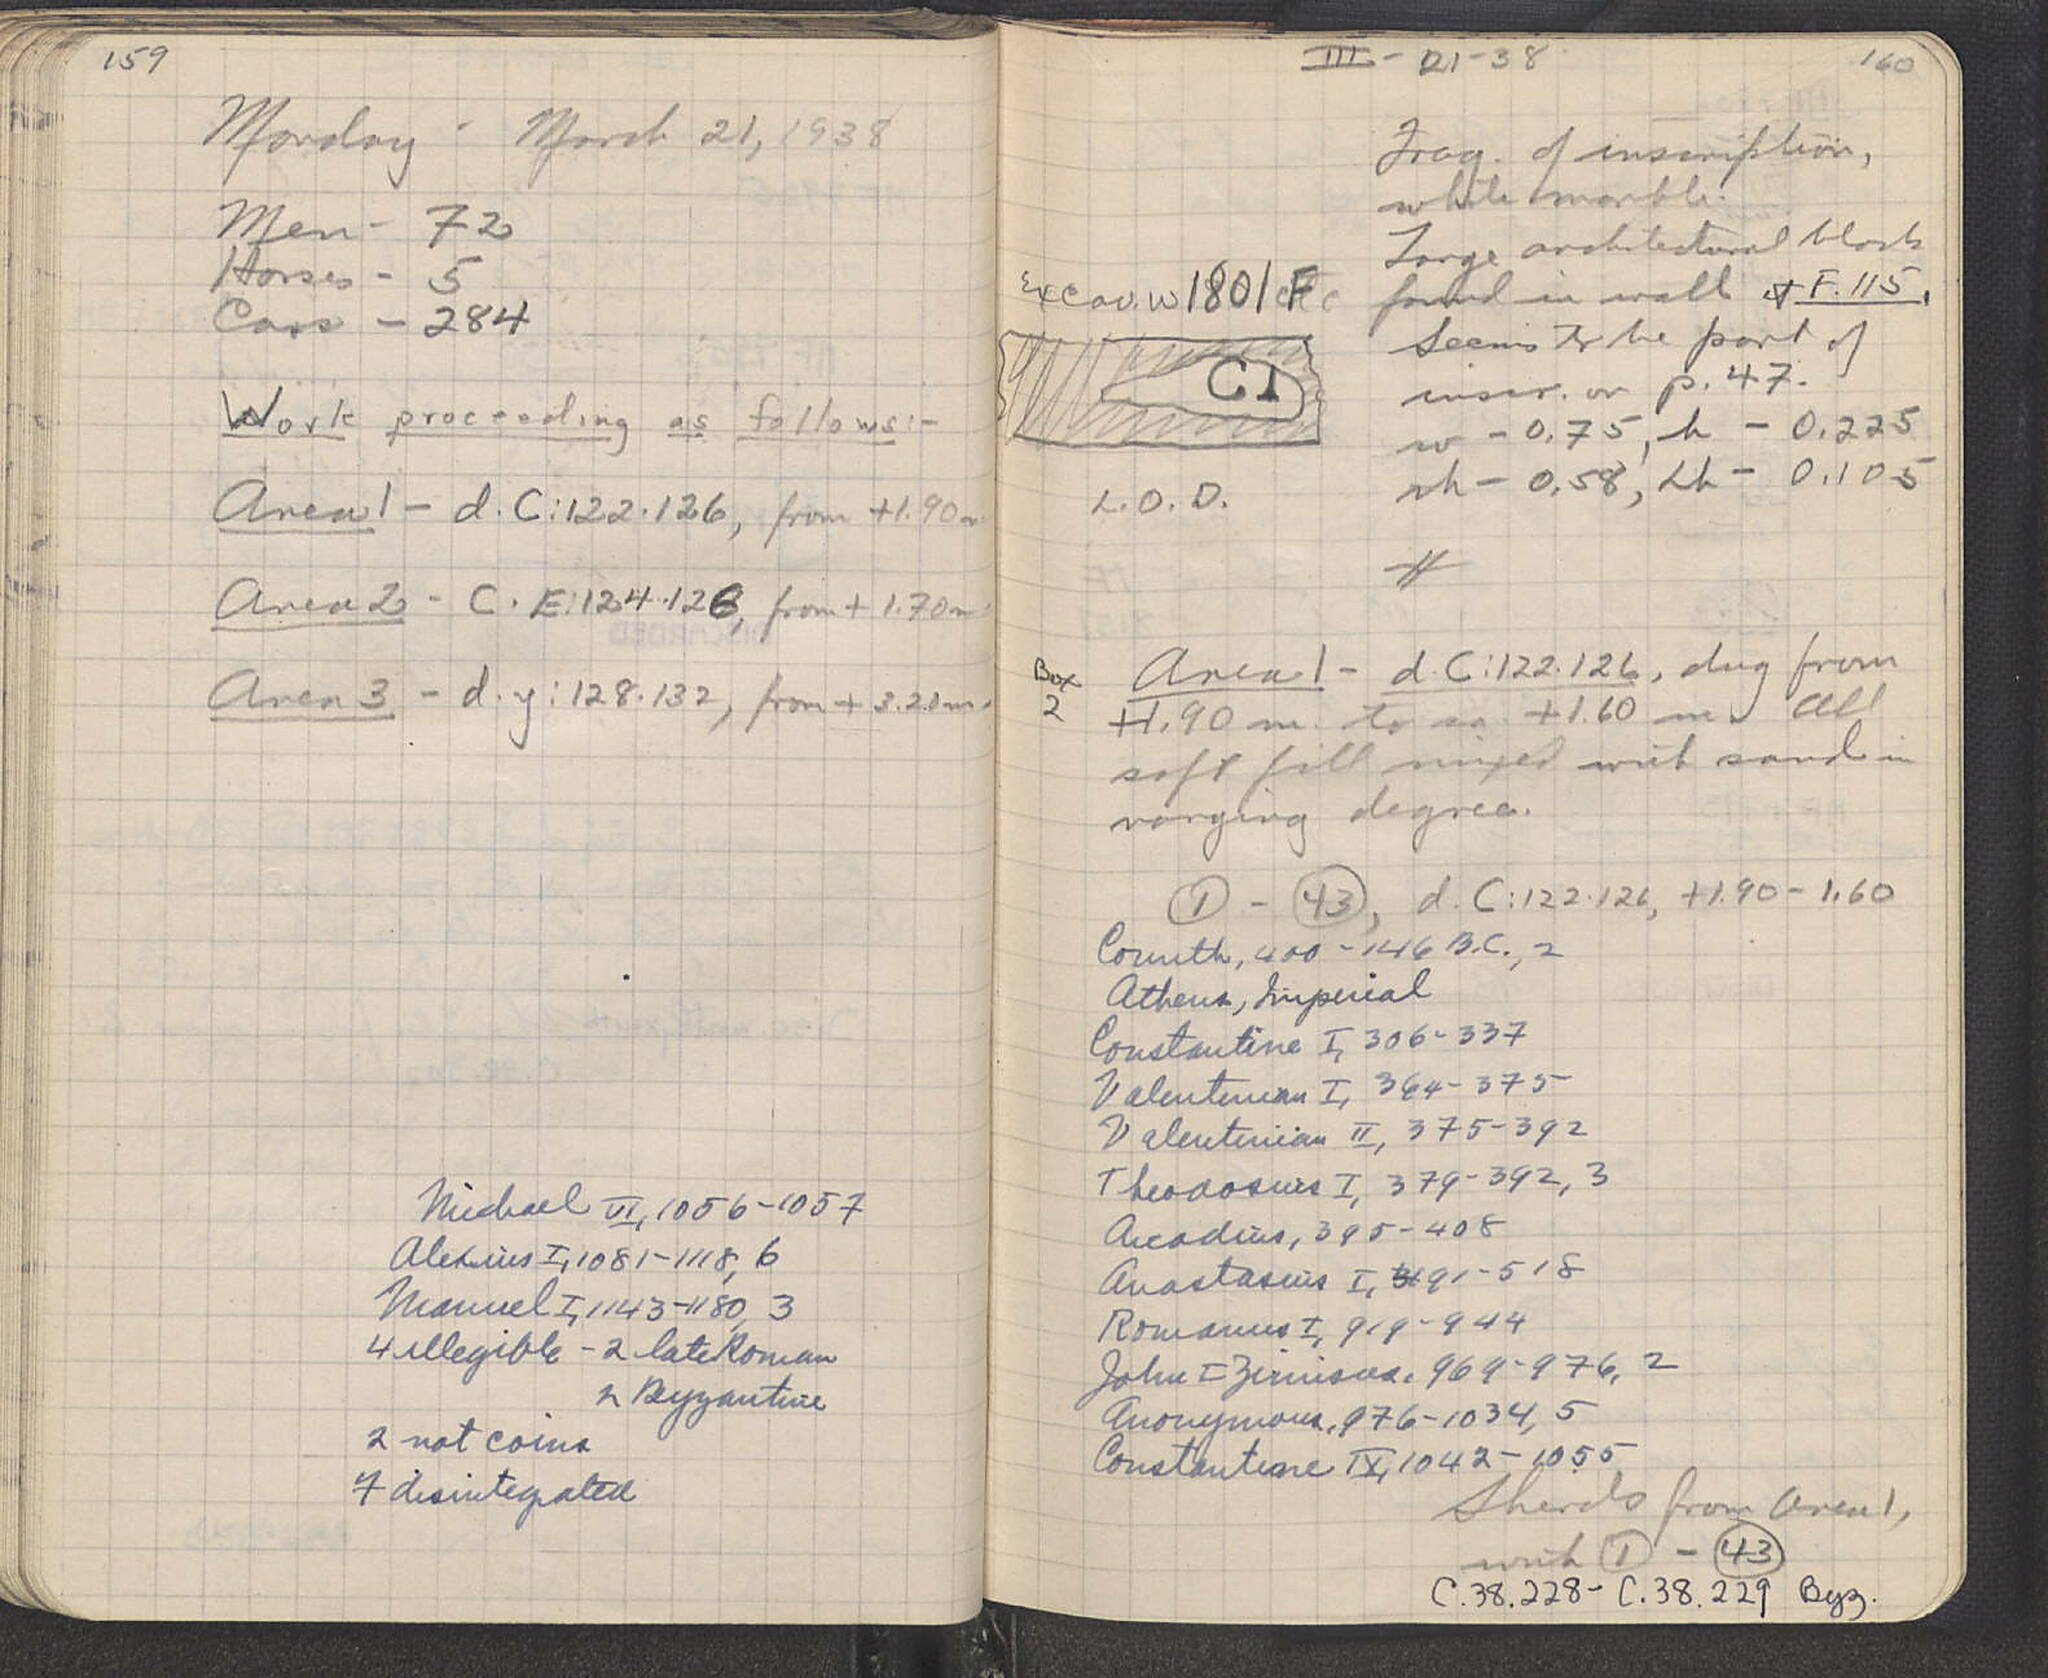 159
Monday - March 21, 1938
Men - 72
Horses - 5
Cars - 284
Work proceeding as follows:-
Area 1 - d.C:122.126, from +1.90m.
Area 2 - C.E:124.126, from +1.70m.
Area 3 - d.y:128.132, from +3.20m.
Michael VI, 1056-1057
Alexius I, 1081-1118, 6
Manuel I, 1143-1180, 3
4 illegible - 2 late Roman
2 Byzantine
2 not coins
7 disintegrated
III - 21-38
160
Frag. of inscription,
white marble.
Large architectural block
found in wall at F.115.
Seems to be part of
inscr. on p. 47.
w - 0.75, h - 0.225
th - 0.58, Lh - 0.105
1801
CI
L.O.D.
Box
2
Area 1 - d.C:122.126, dug from
+1.90 m. to ca. +1.60 m. All
soft fill mixed with sand in
varying degree.
1 - 43, d.C:122.126, +1.90-1.60
Corinth, 400-146 B.C., 2
Athens, Imperial
Constantine I, 306-337
Valentinian I, 364-375
Valentinian II, 375-392
Theodosius I, 379-392, 3
Arcadius, 395-408
Anastasius I, 491-518
Romanus I, 919-944
John I Zimisces, 969-976, 2
Anonymous, 976-1034, 5
Constantine IX, 1042-1055
Sherds from Area 1,
with 1 - 43
C.38.228 - C.38.229 Byz.